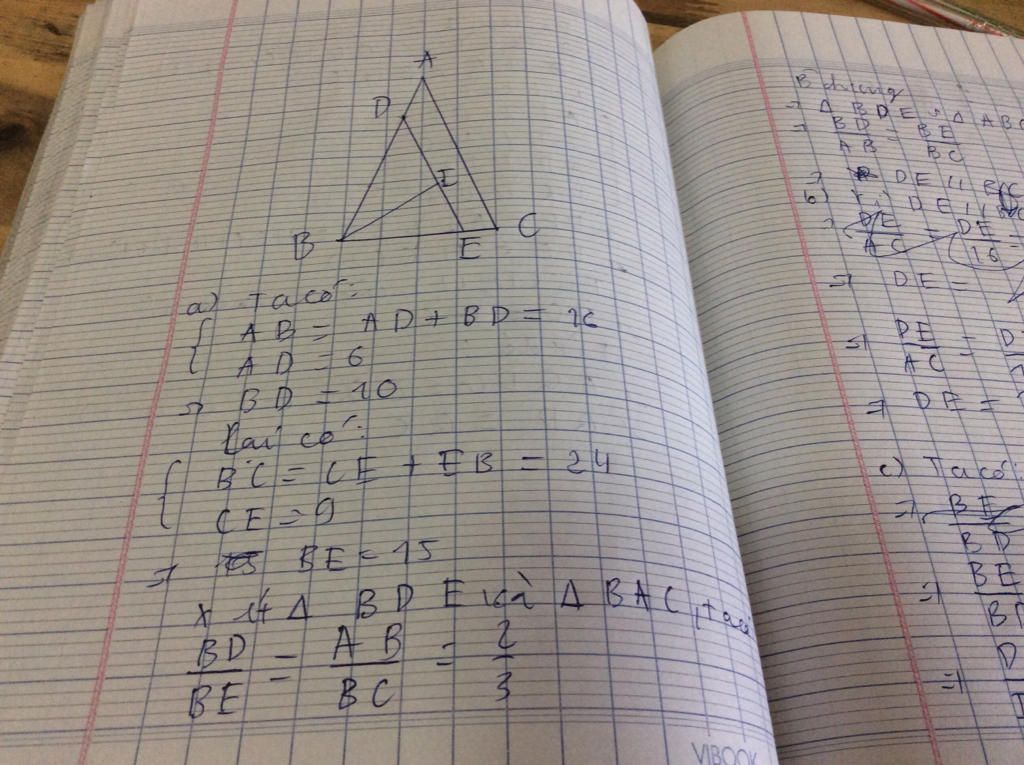 A
D
I
B
E
C
a) Ta có:
AB = AD + BD = 16
AD = 6
=> BD = 10
Lại có:
BC = CE + EB = 24
CE = 9
=> BE = 15
Xét Δ BDE và Δ BAC, ta có
BD/BE = AB/BC = 2/3
VIBOOK
B chung
=> Δ BDE ∽ Δ ABC
=> BD/AB = BE/BC
=> DE //
b) Vì DE //
DE/16
=> DE =
=> DE/AC =
=> DE =
c) Ta có:
=> BE
BD
=> BE
=> D